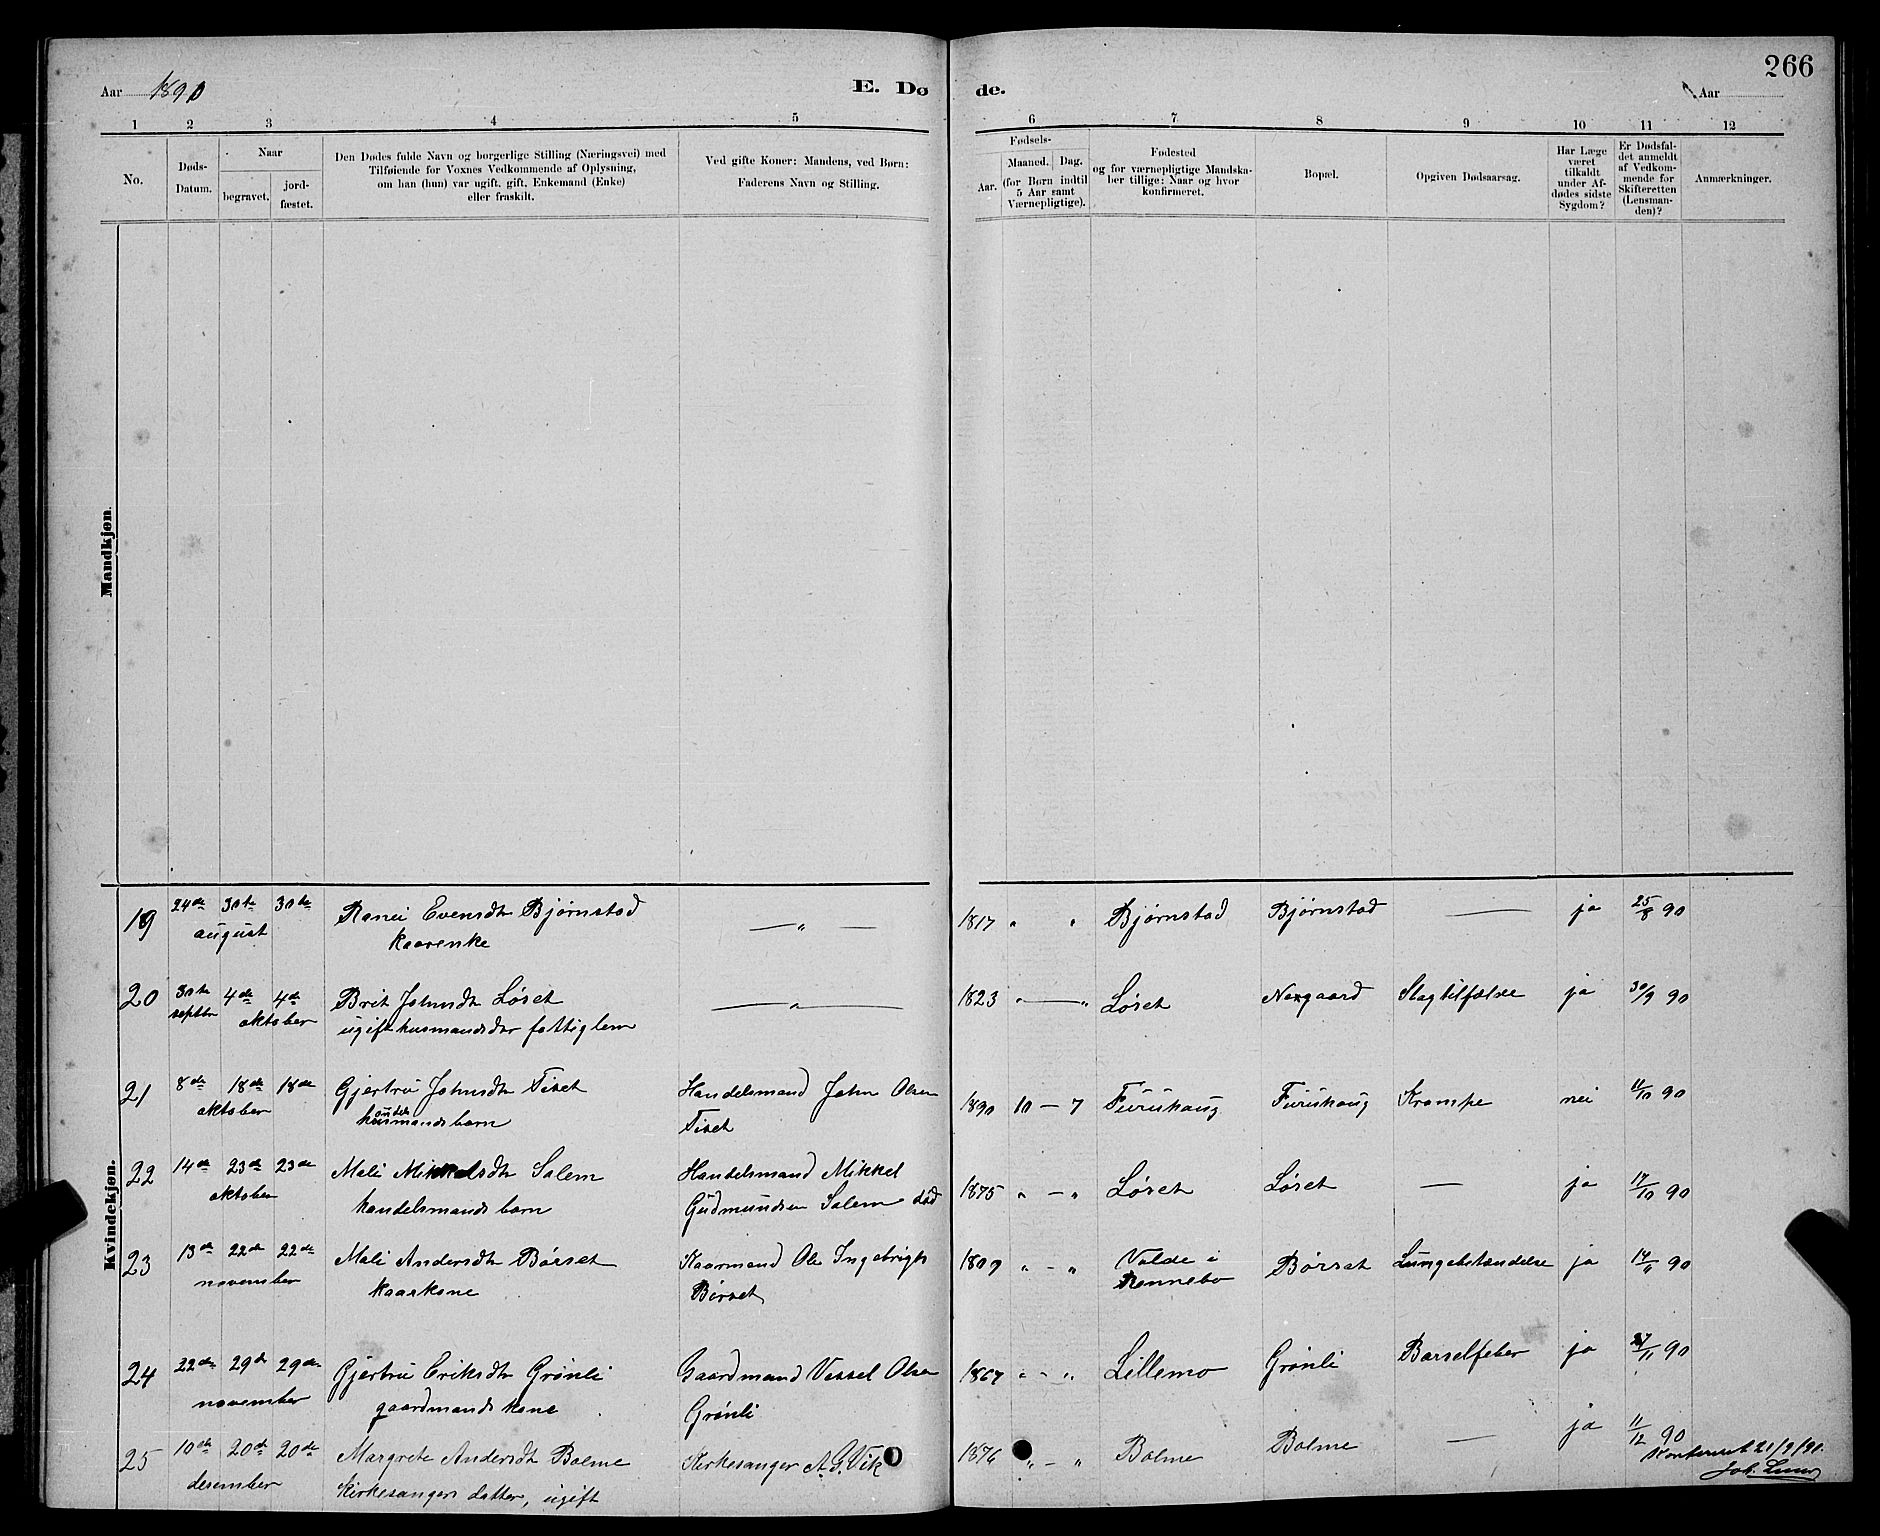 266
Aar 1890
E. Dø
de.
Aar
1 2 3 4 5 6 7 8 9 10 11 12
No.
Døds-
Datum.
Naar
begravet.
jord-
fæstet.
Den Dødes fulde Navn og borgerlige Stilling (Næringsvei) med
Tilføiende for Voxnes Vedkommende af Oplysning,
om han (hun) var ugift, gift, Enkemand (Enke)
eller fraskilt.
Ved gifte Koner: Mandens, ved Børn:
Faderens Navn og Stilling.
Fødsels-
Aar.
Maaned. Dag.
(for Børn indtil
5 Aar samt
Værnepligtige).
Fødested
og for værnepligtige Mandska-
ber tillige: Naar og hvor
konfirmeret.
Bopæl.
Opgiven Dødsaarsag.
Har Læge
været
tilkaldt
under Af-
dødes sidste
Sygdom?
Er Dødsfal-
det anmeldt
af Vedkom-
mende for
Skifteretten
(Lensman-
den)?
Anmærkninger.
Mandkjøn.
Kvindekjøn.
19 24de 30te 30te Ranei Evensdtr Bjørnstad — " — 1817 " " Bjørnstad Bjørnstad — ja 25/8 90
august kaarenke
20 30te 4de 4de Brit Johnsdtr Løset — " — 1823 " — " Løset Nergaard Slagtilfælde ja 30/9 90
septbr oktober ugift husmandsdtr fattiglem
21 8de 18de 18de Gjertru Johnsdtr Tiset Handelsmand John Olsen 1890 10 — 7 Furuhaug Furuhaug Krampe nei 11/10 90
oktober handelsmandsbarn Tiset
22 14de 23de 23de Mali Mikkelsdtr Salem Handelsmand Mikkel 1875 " — " Løset Løset — ja 17/10 90
oktober handelsmands barn Gudmundsen Salem død
23 13de 22de 22de Mali Andersdtr Børset Kaarmand Ole Ingebrigts 1809 " — " Volde i Børset Lungebetændelse ja 14/11 90
november kaarkone Børset Rennebo
24 22de 29de 29de Gjertru Eriksdtr Grønli Gaardmand Vessel Olsen 1867 " — " Lillemo Grønli Barselfeber ja 27/11 90
november gaardmands kone Grønli
25 10de 20de 20de Margrete Andersdtr Bolme Kirkesanger A. G. Vik 1876 " — " Bolme Bolme — ja 11/12 90
desember kirkesangers datter, ugift
Konfereret 21/9/91.